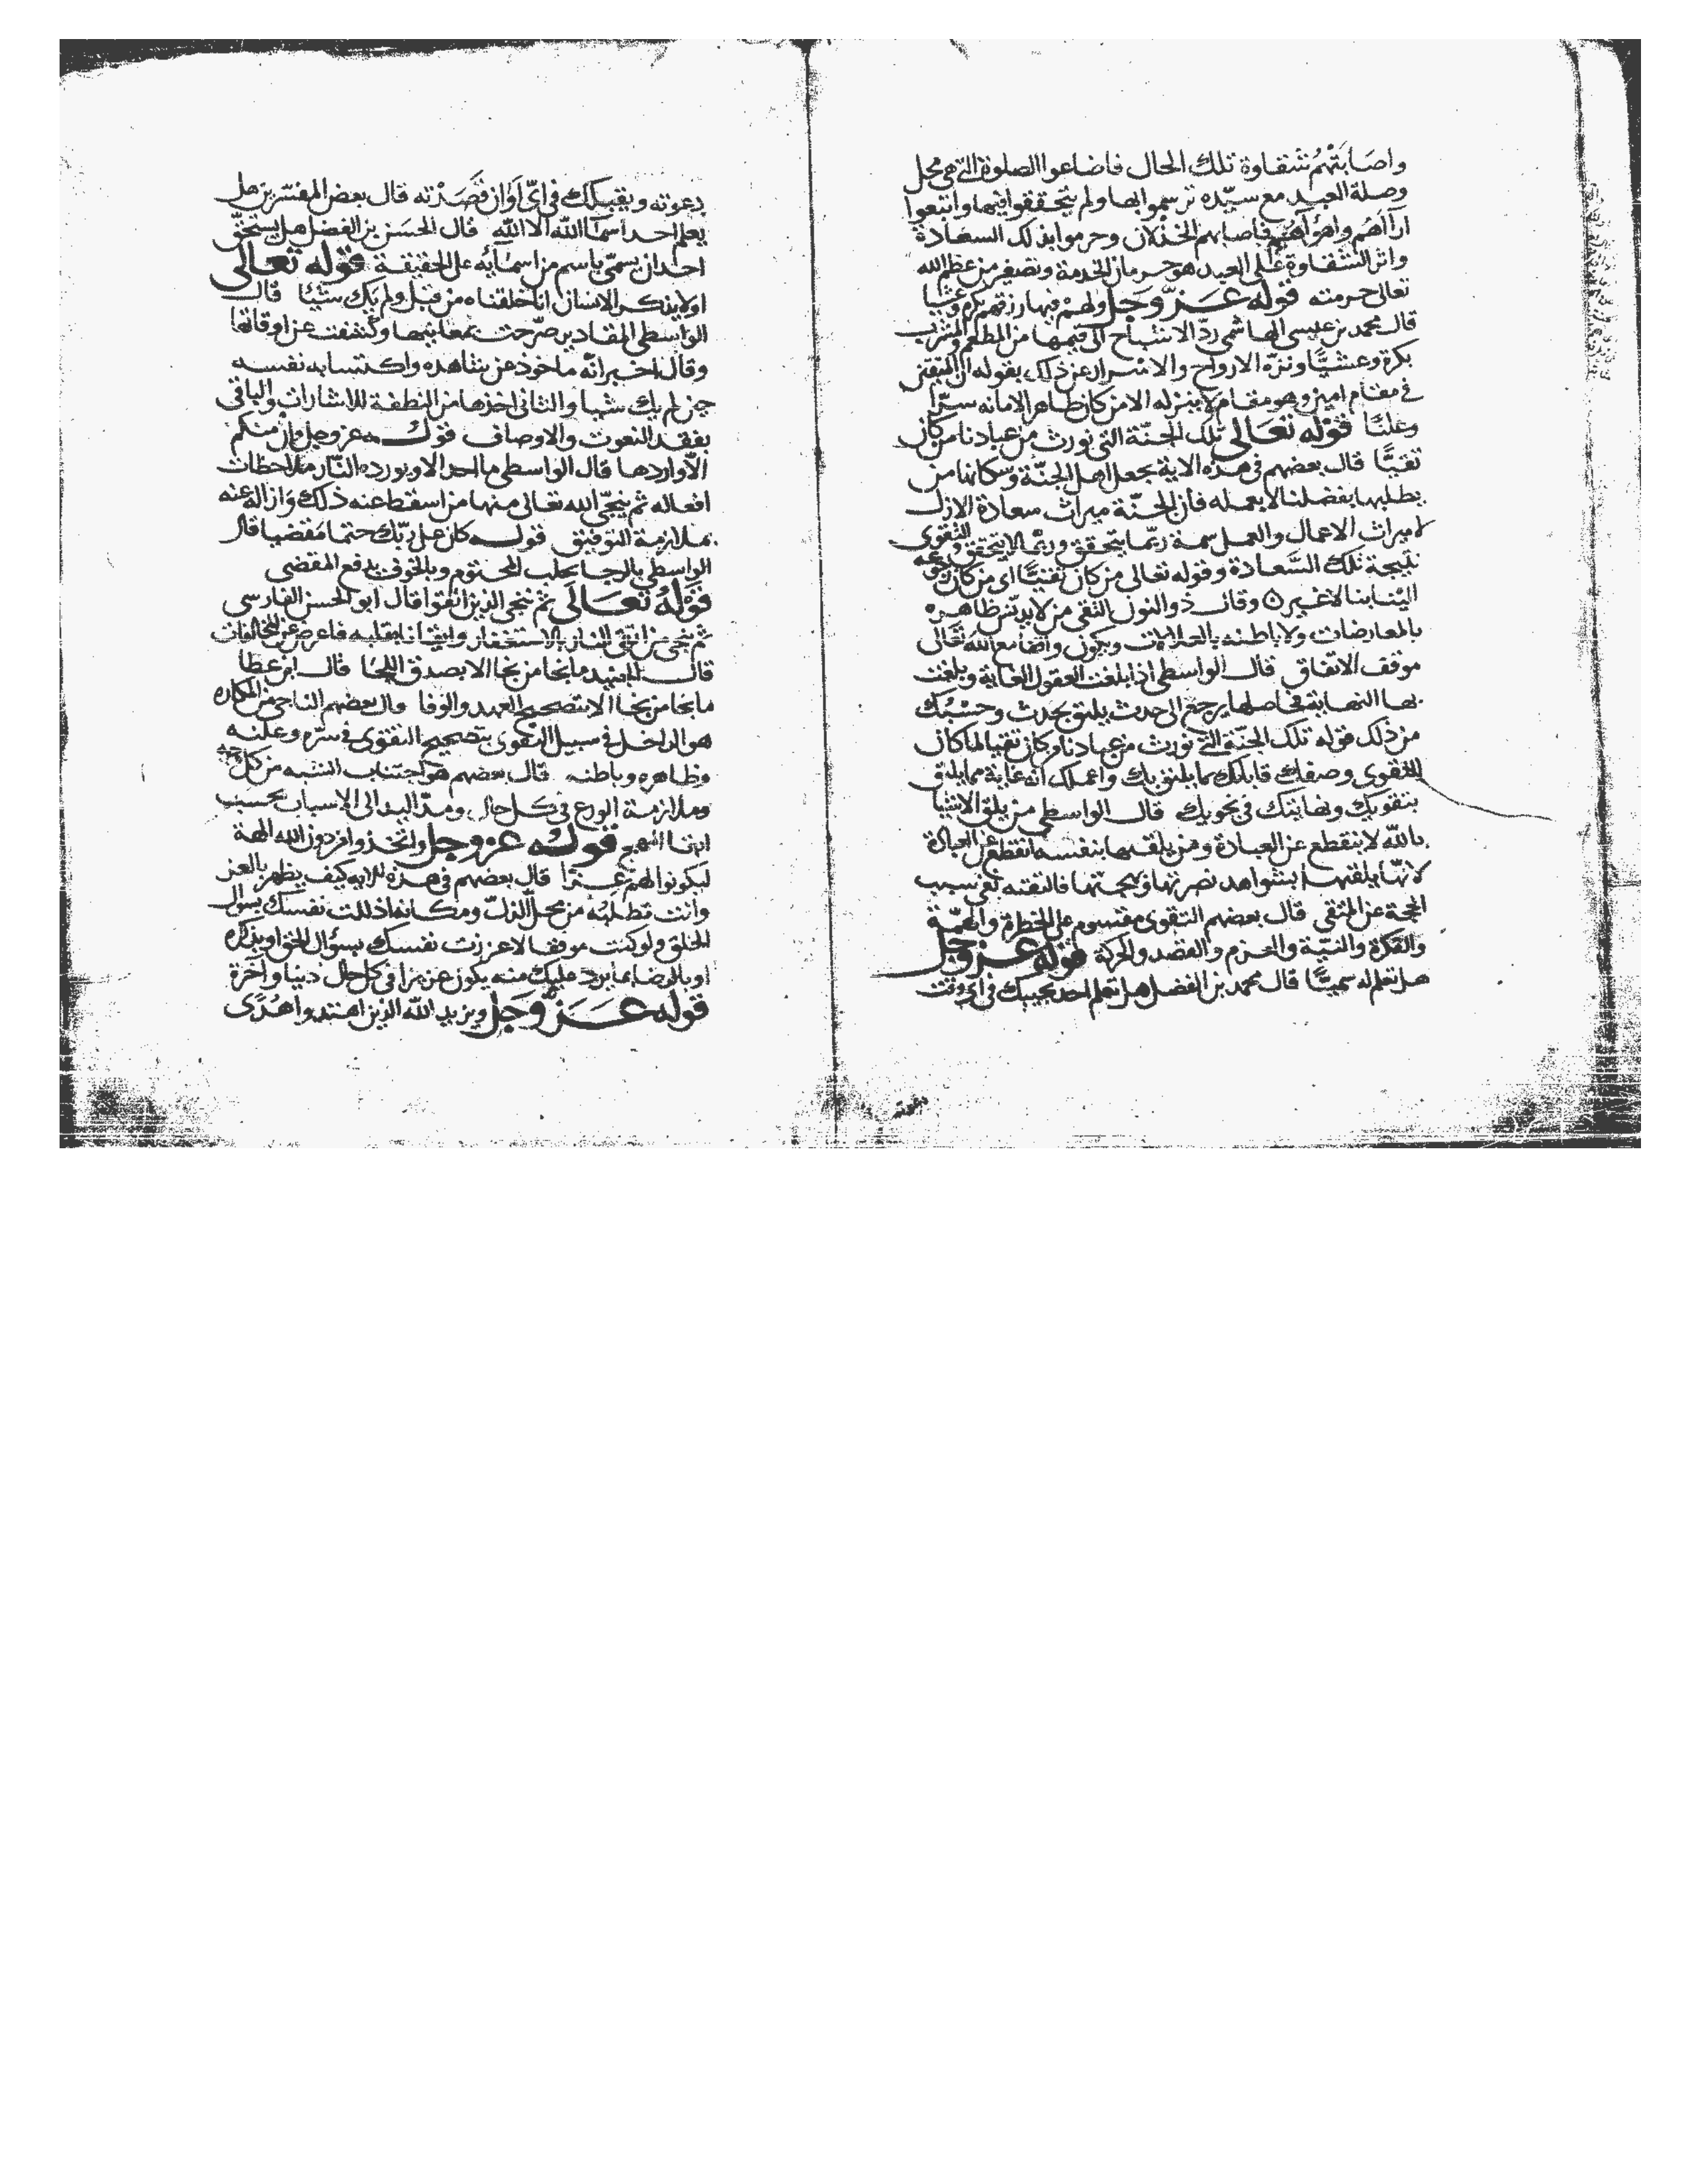 واصابتهم شقاوة تلك الحال فاضاعوا الصلوة التي هي محل
وصلة العبد مع سيده ترسموا بها ولم يتحققوا فيها واتبعوا
اراءهم واهواءهم فاصابهم الخذلان وحرموا بذلك السعادة
واثر الشقاوة على العبد هو حرمان الخدمة وتصغير من عظم الله
تعالى حرمته قوله عز وجل ولهم فيها رزقهم بكرة وعشيا
قال محمد بن عيسى الهاشمي رد الاشباح الى قيمها من المطعم والمشرب
بكرة وعشيا ونزه الارواح والاسرار عن ذلك بقوله ان المتقين
في مقام امين وهو مقام لا ينزله الا من كان طاهر الامانه سرا
وعلنا قوله تعالى تلك الجنة التي نورث من عبادنا من كان
تقيا قال بعضهم في هذه الاية يجعل اهل الجنة وسكانها من
يطلبها بفضلنا لا بعمله فان الجنة ميراث سعادة الازل
لا ميراث الاعمال والعمل سمة ربما يتحقق وربما لا يتحقق والتقوى
نتيجة تلك السعادة وقوله تعالى من كان تقيا اى من كان رجوعه
الينا بنا لا غير ن وقال ذو النون التقي من لا يدنس ظاهره
بالمعارضات ولا باطنه بالعلالات ويكون واقفا مع الله تعالى
موقف الاتفاق قال الواسطي اذا بلغت العقول الغاية وبلغت
بها النهاية فحاصلها يرجع الى حدث يليق بحدث وحسبك
من ذلك قوله تلك الجنة التي نورث من عبادنا من كان تقيا لما كان
التقوى وصفك قابلك بما يليق بك واعملك انه غاية ما يليق
بتقويك ونهايتك في نجويك قال الواسطي من يلق الاشيا
بالله لا ينقطع عن العبادة ومن يلقها بنفسه انقطع عن العبادة
لانها يلقتها بشواهد نصرتها وبهجتها فالتقته نعي سبب
المحجة عن المتقي قال بعضهم التقوى مقسوم على الخطرة والهمة
والفكرة والنية والعزم والقصد والحركة قوله عز وجل
هل تعلم له سميا قال محمد بن الفضل هل تعلم احد يجيبك في اى وقت
دعوته
دعوته ويقبلك في اى اوان قصدته قال بعض المفسرين هل
يعلم احد اسما الله الا الله قال الحسن بن الفضل هل يستحق
احد ان يسمى باسم من اسمائه على الحقيقة قوله تعالى
اولا يذكر الانسان انا خلقناه من قبل ولم يك شيئا قال
الواسطي المقادير صرحت بمعانيها وكشفت عن اوقاتها
وقال اخبر انه ماخوذ عن شاهده واكتسابه نفسه
حين لم يك شيا والثاني اخذها من النطفة للاشارات والباقي
بفقد النعوت والاوصاف قوله عز وجل وان منكم
الا واردها قال الواسطي ما احد الا ويورده النار ملاحظات
افعاله ثم ينجي الله تعالى منها من اسقط عنه ذلك وازاله عنه
بملازمة التوفيق قوله كان على ربك حتما مقضيا قال
الواسطي بالرجا يجلب المحتوم وبالخوف يدفع المقضي
قوله تعالى ثم ننجي الذين اتقوا قال ابو الحسن الفارسي
ثم ننجي من اتقى النار بالاستغفار وايقانا بقلبه فاعرض عن المخالفات
قال الجنيد ما نجا من نجا الا بصدق اللجا قال ابن عطا
ما نجا من نجا الا بتصحيح العهد والوفا وقال بعضهم الناجي من المكاره
هو الداخل في سبيل التقوى بتصحيح التقوى في سره وعلنه
وظاهره وباطنه قال بعضهم هو اجتناب الشبه من كل وجه
وملازمة الورع في كل حال ومد اليد الى الاسباب بحسب
ابقا المهج قوله عز وجل واتخذوا من دون الله الهة
ليكونوا لهم عزا قال بعضهم في هذه الايه كيف يظهر بالعز
وانت تطلبه من محل الذل ومكانه اذللت نفسك بسؤال
الخلق ولو كنت موفقا لاعززت نفسك بسؤال الحق او بذكره
او بالرضا بما يرد عليك منه يكون عزيزا في كل حال دنيا وآخرة
قوله عز وجل ويزيد الله الذين اهتدوا هدى